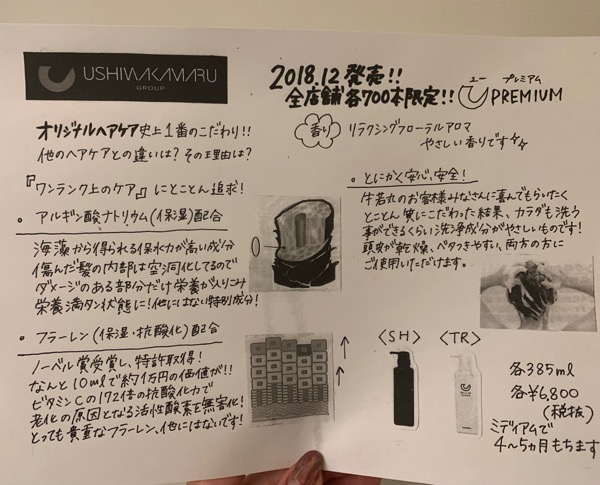 USHIWAKAMARU
GROUP
2018.12 発売!!
全店舗各700本限定!!
ユー プレミアム
U PREMIUM
オリジナルヘアケア史上1番のこだわり!!
他のヘアケアとの違いは?その理由は?
香り リラクシングフローラルアロマ
やさしい香りです
『ワンランク上のケア』にとことん追求!
• アルギン酸ナトリウム(保湿)配合
海藻から得られる保水力が高い成分
傷んだ髪の内部は空洞化してるので
ダメージのある部分だけ栄養が入りこみ
栄養満タン状態に!他にはない特別成分!
• フラーレン(保湿・抗酸化)配合
ノーベル賞受賞し、特許取得!
なんと10mlで約1万円の価値が!!
ビタミンCの172倍の抗酸化力で
老化の原因となる活性酸素を無害化!
とっても貴重なフラーレン、他にはないです!
• とにかく安心、安全!
牛若丸のお客様みなさんに喜んでもらいたく
とことん質にこだわった結果、カラダも洗う
事ができるくらい洗浄成分がやさしいものです!
頭皮が乾燥、ベタつきやすい、両方の方に
ご使用いただけます。
〈SH〉 〈TR〉
各385ml
各¥6,800
(税抜)
ミディアムで
4~5ヵ月もちます